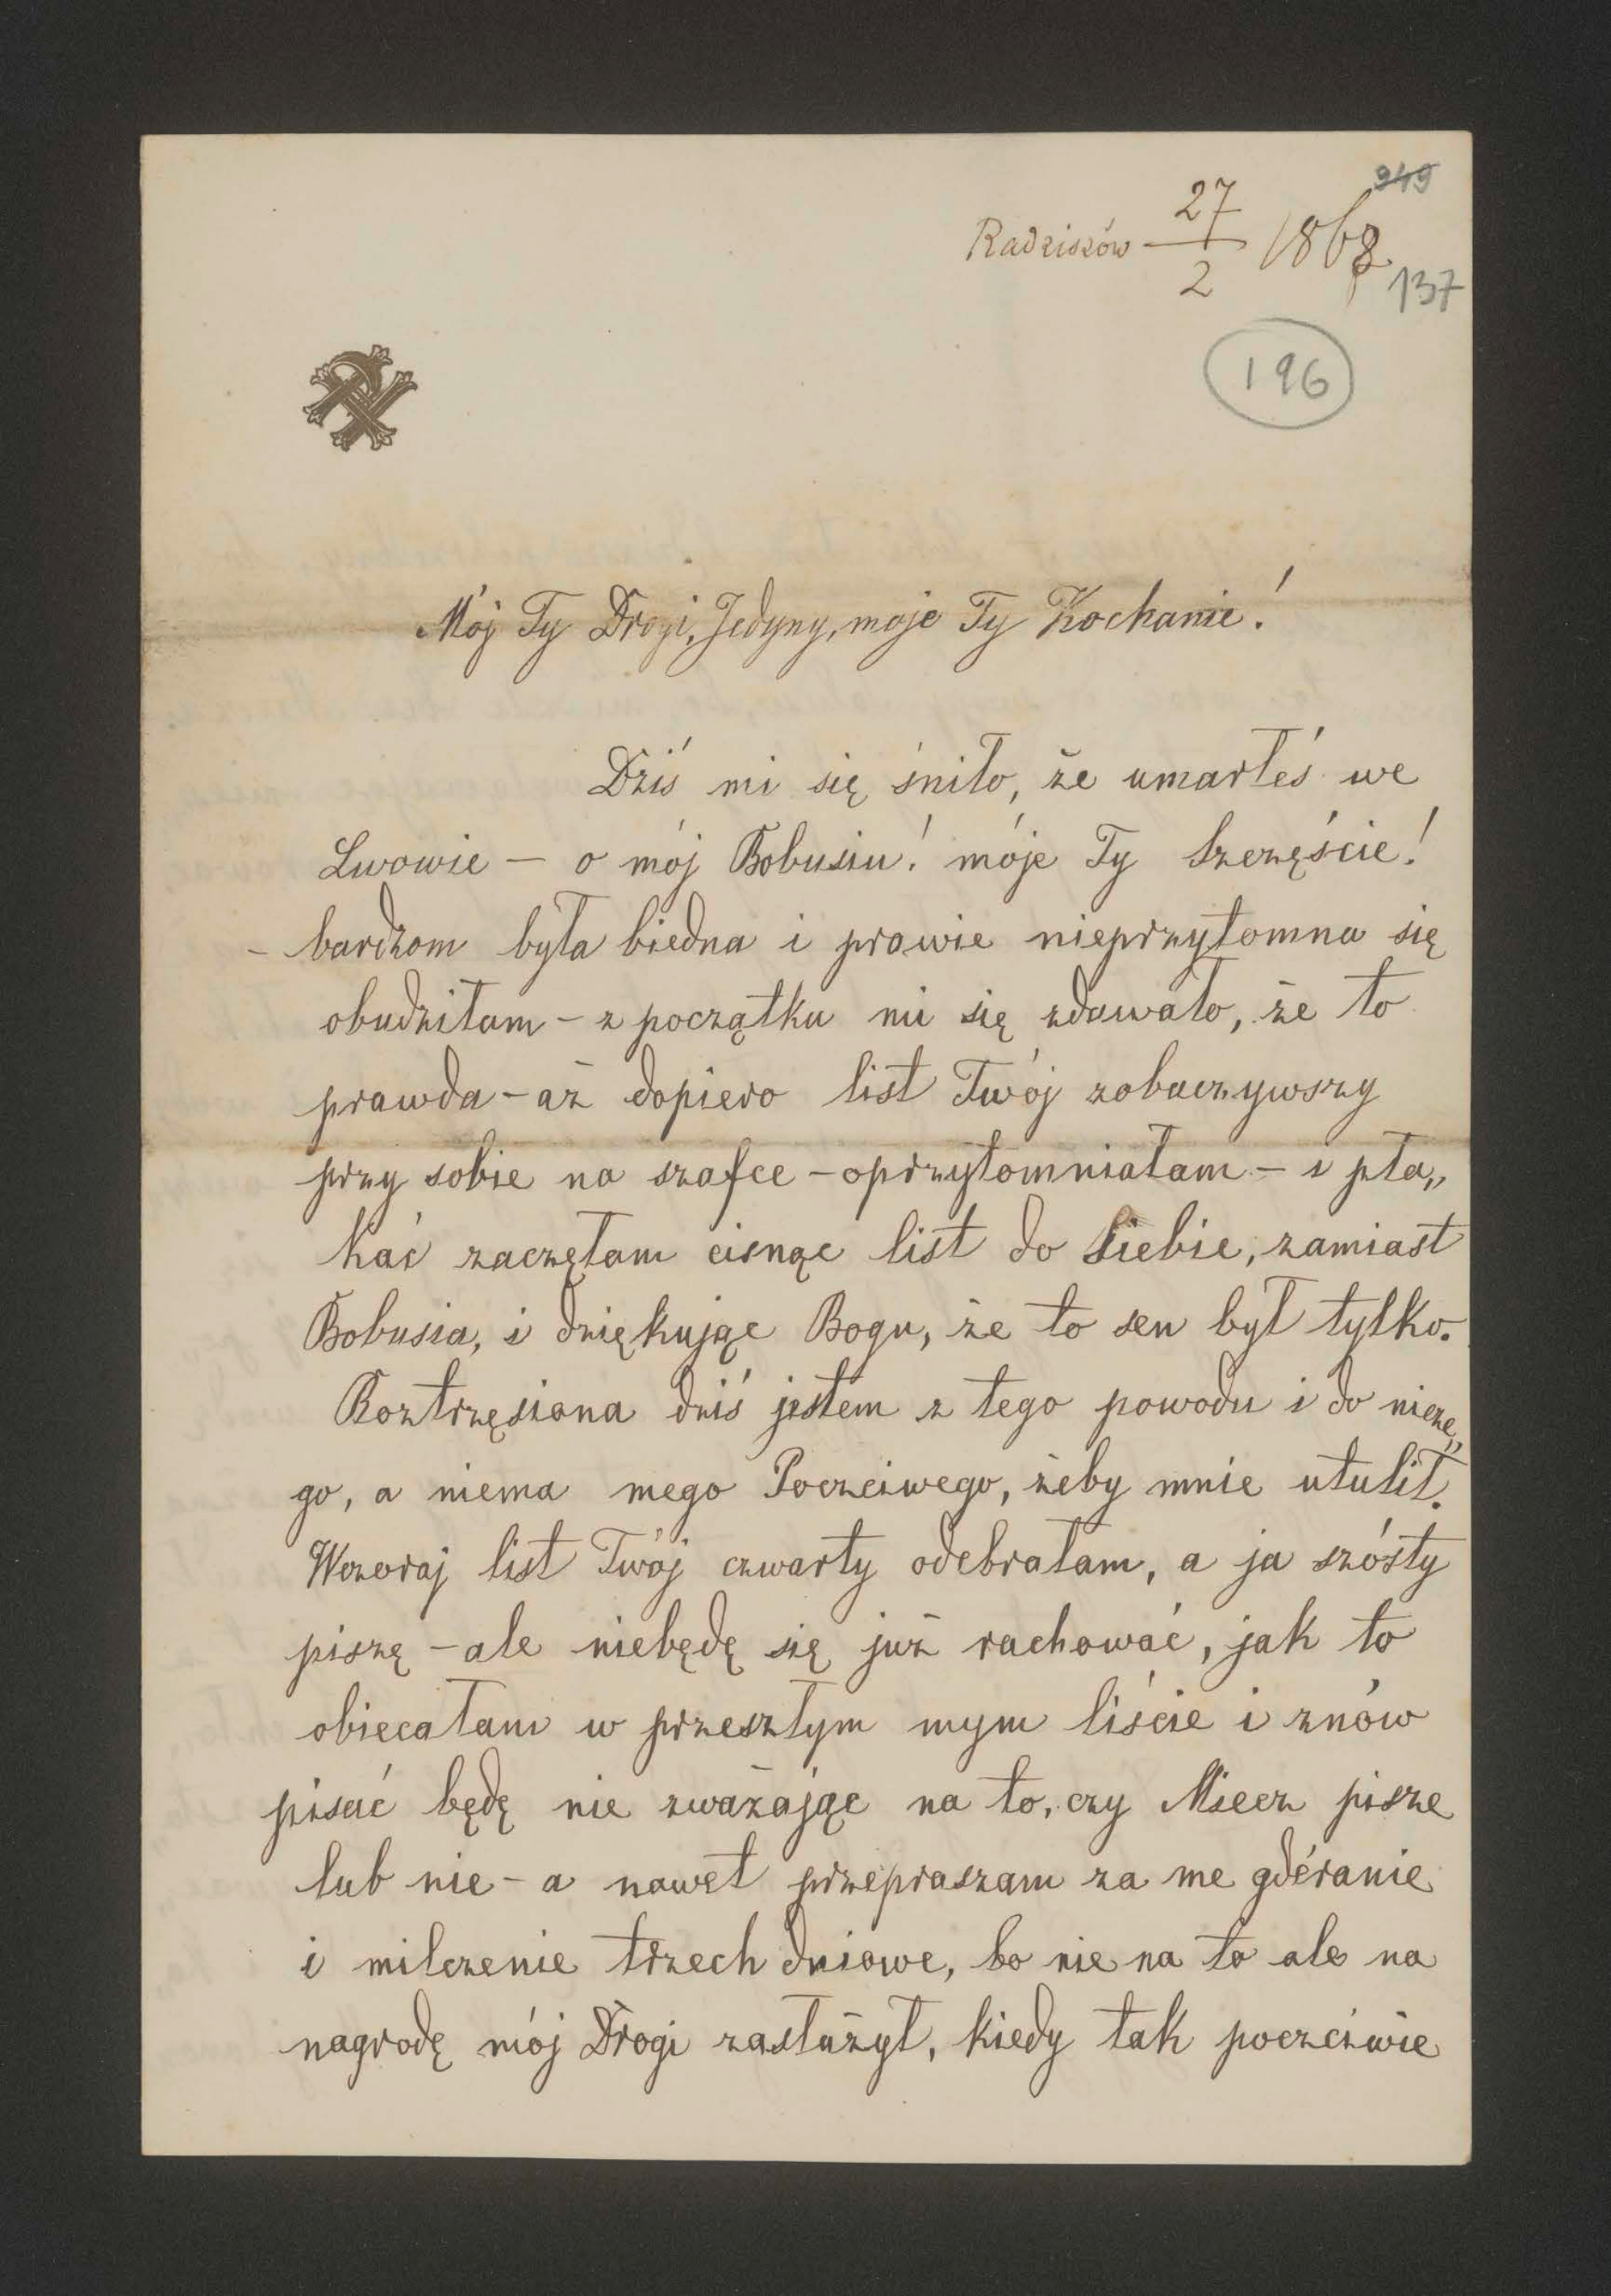 949
Radziszów 27/2 1868
137
196
Mój Ty Drogi, Jedyny, moje Ty Kochanie!
Dziś mi się śniło, że umarłéś we
Lwowie — o mój Bobusiu! móje Ty Szczęście!
– bardzom była biedna i prawie nieprzytomna się
obudziłam – z początku mi się zdawało, że to
prawda – aż dopiero list Twój zobaczywszy
przy sobie na szafce – oprzytomniałam – i pła„
kać zaczęłam cisnąc list do siebie, zamiast
Bobusia, i dziękując Bogu, że to sen był tylko.
Roztrzęsiona dziś jestem z tego powodu i do nicze„
go, a niema mego Poczciwego, żeby mnie utulił.
Wczoraj list Twój czwarty odebrałam, a ja szósty
piszę – ale niebędę się już rachować, jak to
obiecałam w przeszłym mym liście i znów
pisać będę nie zważając na to, czy Miecz pisze
lub nie – a nawet przepraszam za me gdéranie
i milczenie trzech dniowe, bo nie na to ale na
nagrodę mój Drogi zasłużył, kiedy tak poczciwie